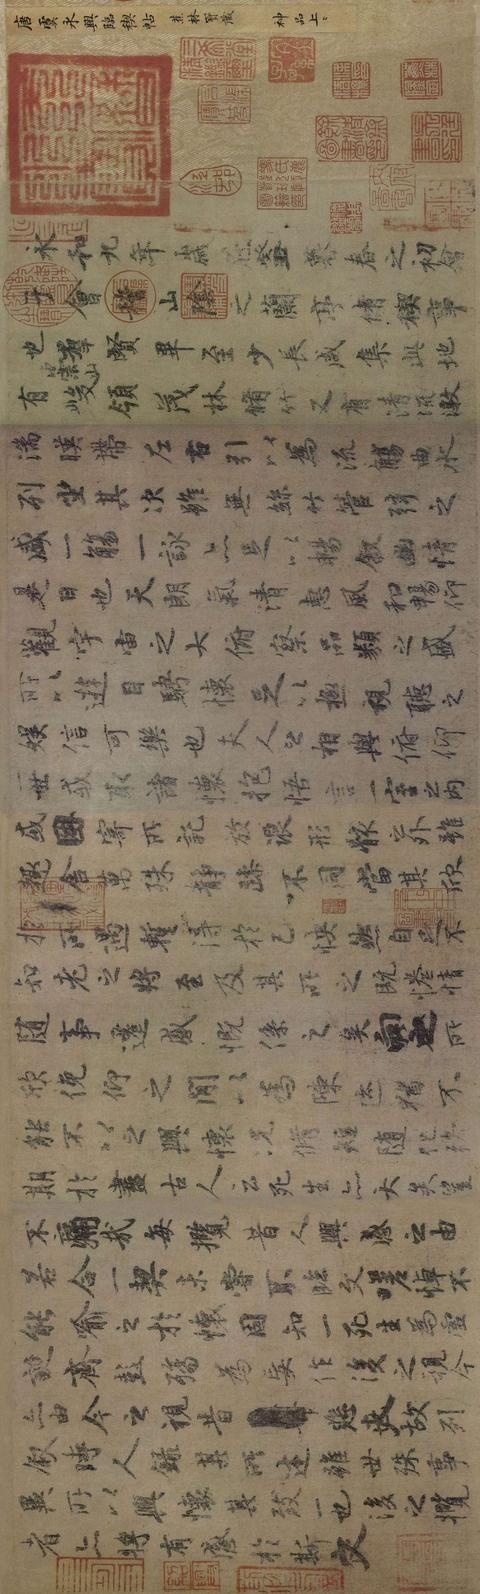 唐虞永興臨禊帖 墨林寶藏 神品上上
永和九年歲在癸丑暮春之初會
于會稽山陰之蘭亭脩稧事
也羣賢畢至少長咸集此地
有崇山峻領茂林脩竹又有清流激
湍暎帶左右引以為流觴曲水
列坐其次雖無絲竹管弦之
盛一觴一詠亦足以暢敘幽情
是日也天朗氣清惠風和暢仰
觀宇宙之大俯察品類之盛
所以遊目騁懷足以極視聽之
娛信可樂也夫人之相與俯仰
一世或取諸懷抱悟言一室之內
或因寄所託放浪形骸之外雖
趣舍萬殊靜躁不同當其欣
於所遇暫得於己怏然自足不
知老之將至及其所之既惓情
隨事遷感慨係之矣向之所
欣俛仰之閒以為陳迹猶不
能不以之興懷況脩短隨化終
期於盡古人云死生亦大矣豈
不痛哉每攬昔人興感之由
若合一契未嘗不臨文嗟悼不
能喻之於懷固知一死生為虛
誕齊彭殤為妄作後之視今
亦由今之視昔悲夫故列
敘時人錄其所述雖世殊事
異所以興懷其致一也後之攬
者亦將有感於斯文